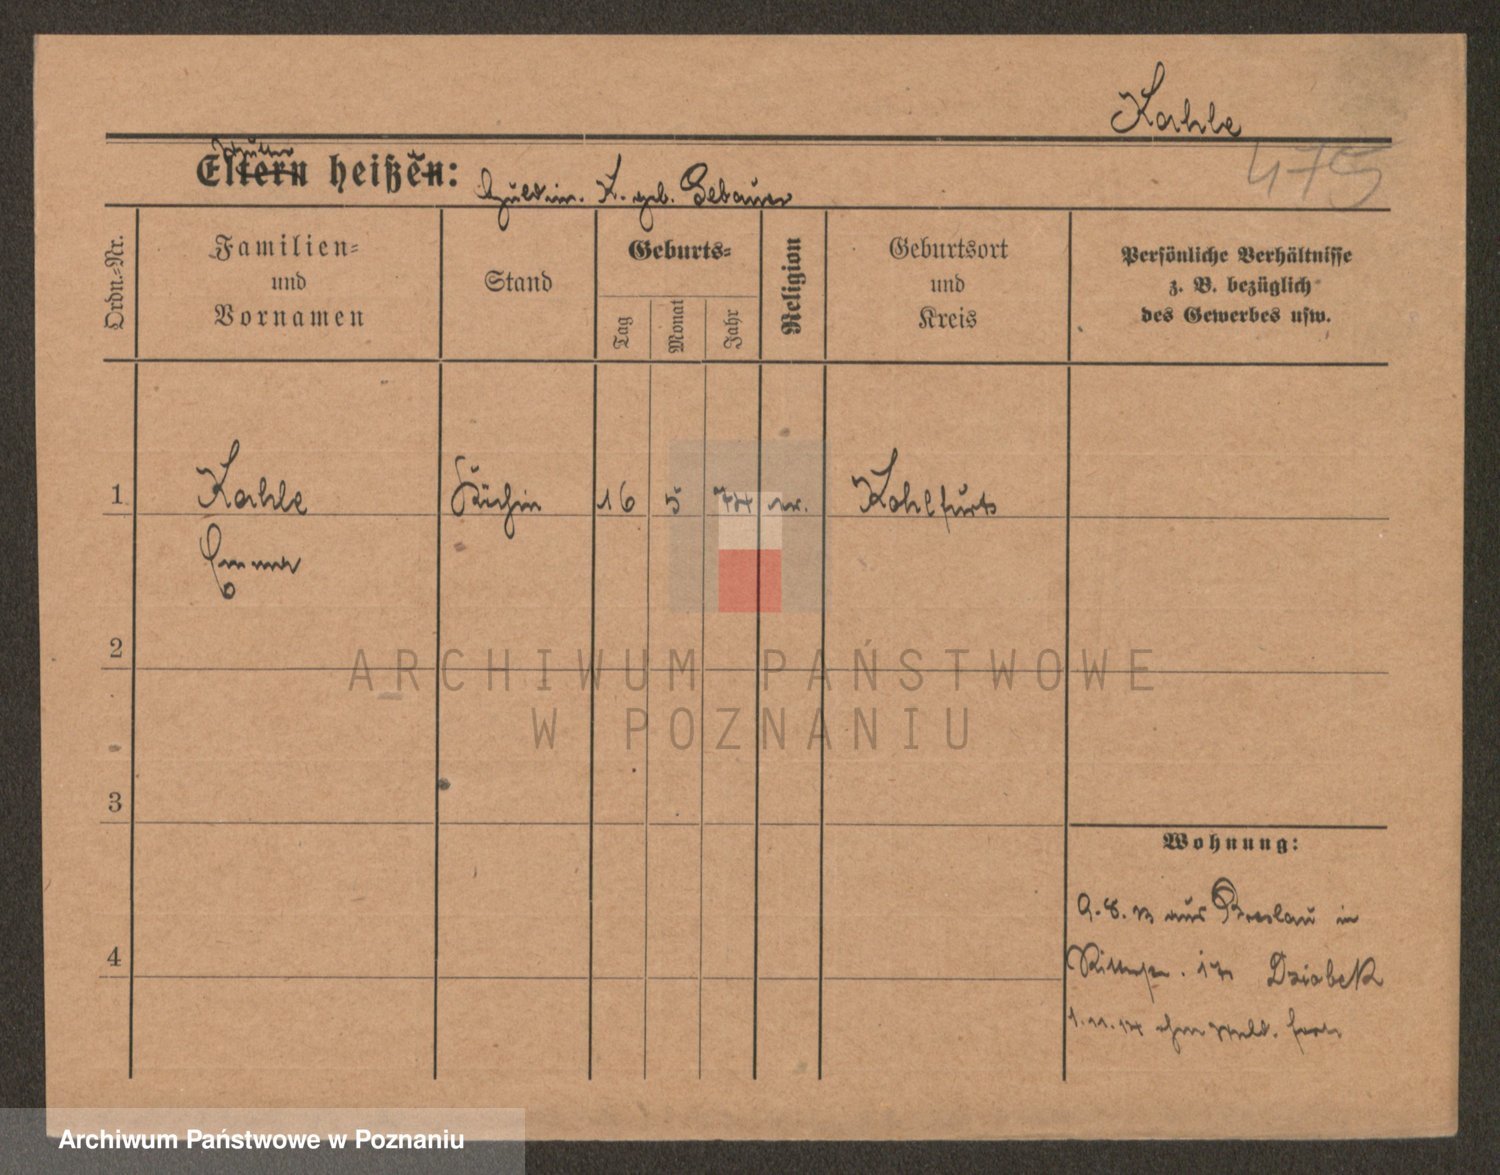 Kahle
475
Mutter
Eltern heißen:
K. geb. Gebauer
Ordn.-Nr.
Familien-
und
Vornamen
Stand
Geburts-
Tag
Monat
Jahr
Religion
Geburtsort
und
Kreis
Persönliche Verhältnisse
z. B. bezüglich
des Gewerbes usw.
1
Kahle
Köchin
16
5
74
ev.
Kohlfurt
Emma
2
ARCHIWUM PAŃSTWOWE
W POZNANIU
3
Wohnung:
9.8.13 aus Breslau in
Ritterstr. 17 Dziabek
4
1.11.14 ohne Meld. fort
Archiwum Państwowe w Poznaniu